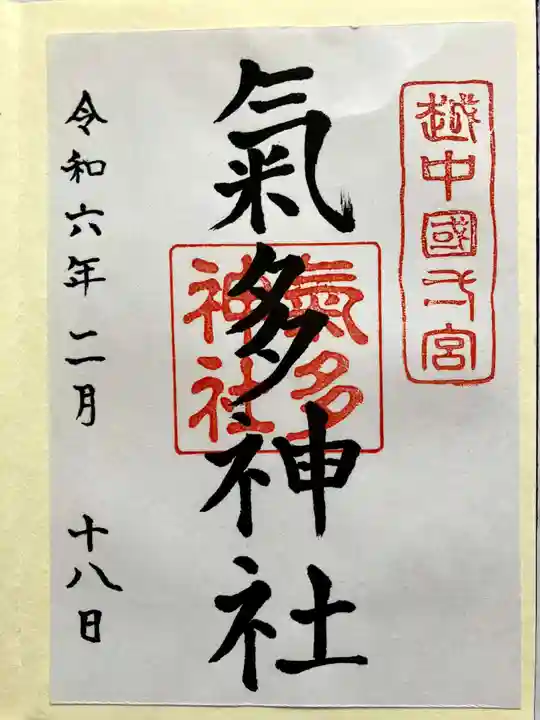 越中國一宮
氣多神社
氣多
神社
令和六年二月 十八日